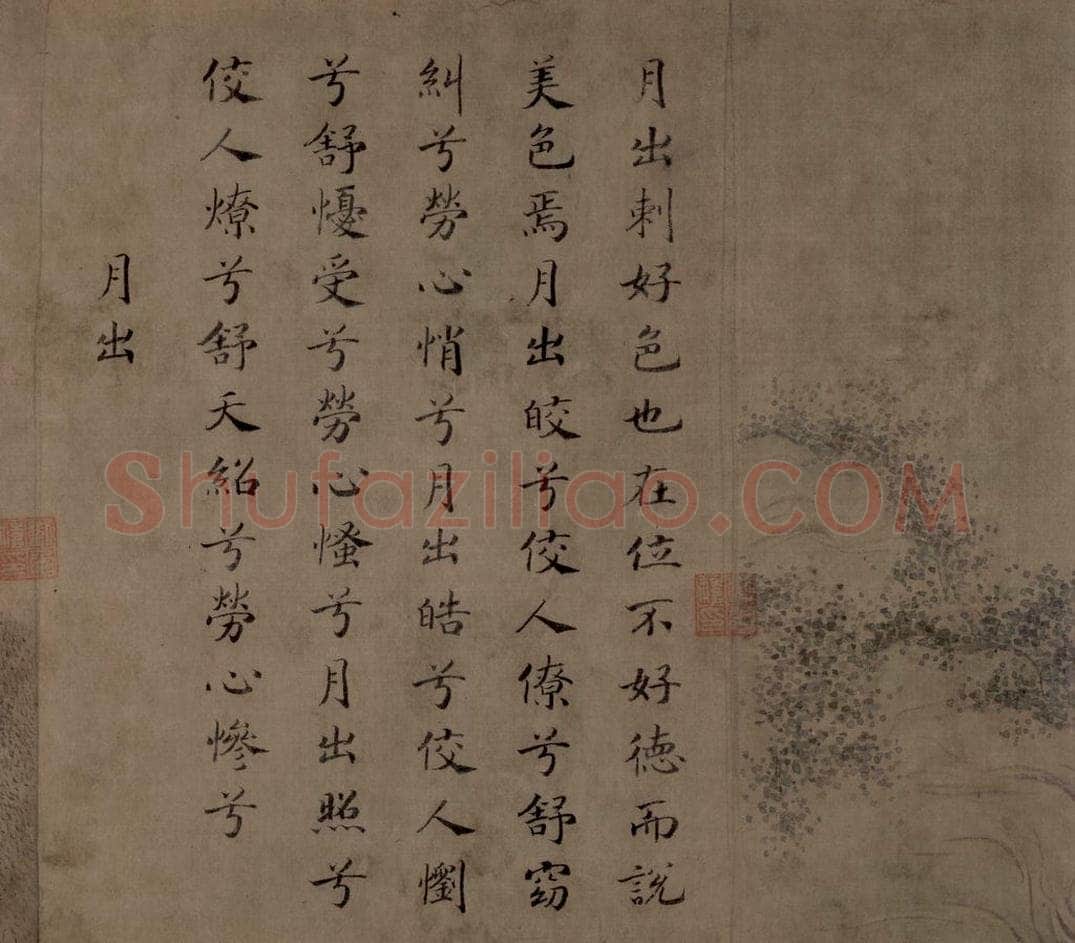 月出刺好色也在位不好德而說
美色焉月出皎兮佼人僚兮舒窈
糾兮勞心悄兮月出皓兮佼人懰
兮舒懮受兮勞心慅兮月出照兮
佼人燎兮舒夭紹兮勞心慘兮
月出
Shufaziliao.COM